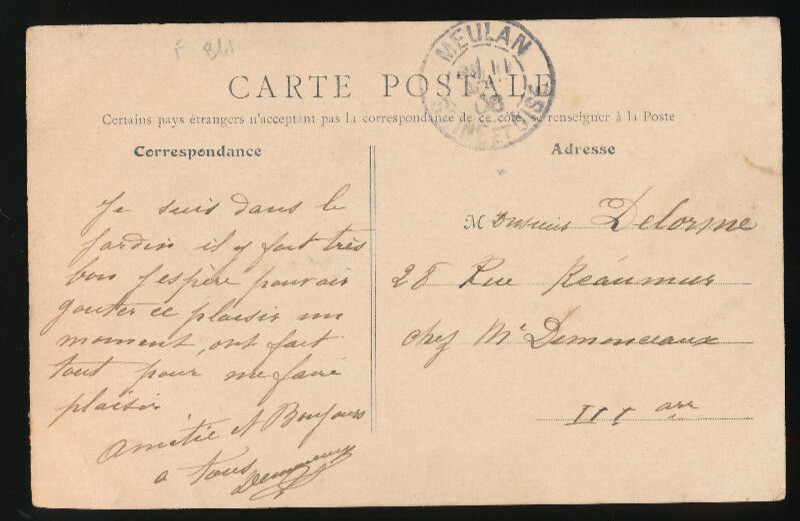 F
MEULAN
11
08
SEINE ET OISE
CARTE POSTALE
Certains pays étrangers n'acceptant pas la correspondance de ce côté, se renseigner à la Poste
Correspondance
Je suis dans le
jardin il y fait très
bon j'espère pouvoir
gouter ce plaisir un
moment, ont fait
tout pour me faire
plaisir
Amitié et Bonjours
a tous
Adresse
M Delorme
28 Rue Réaumur
chez Mr Demonceaux
III arr